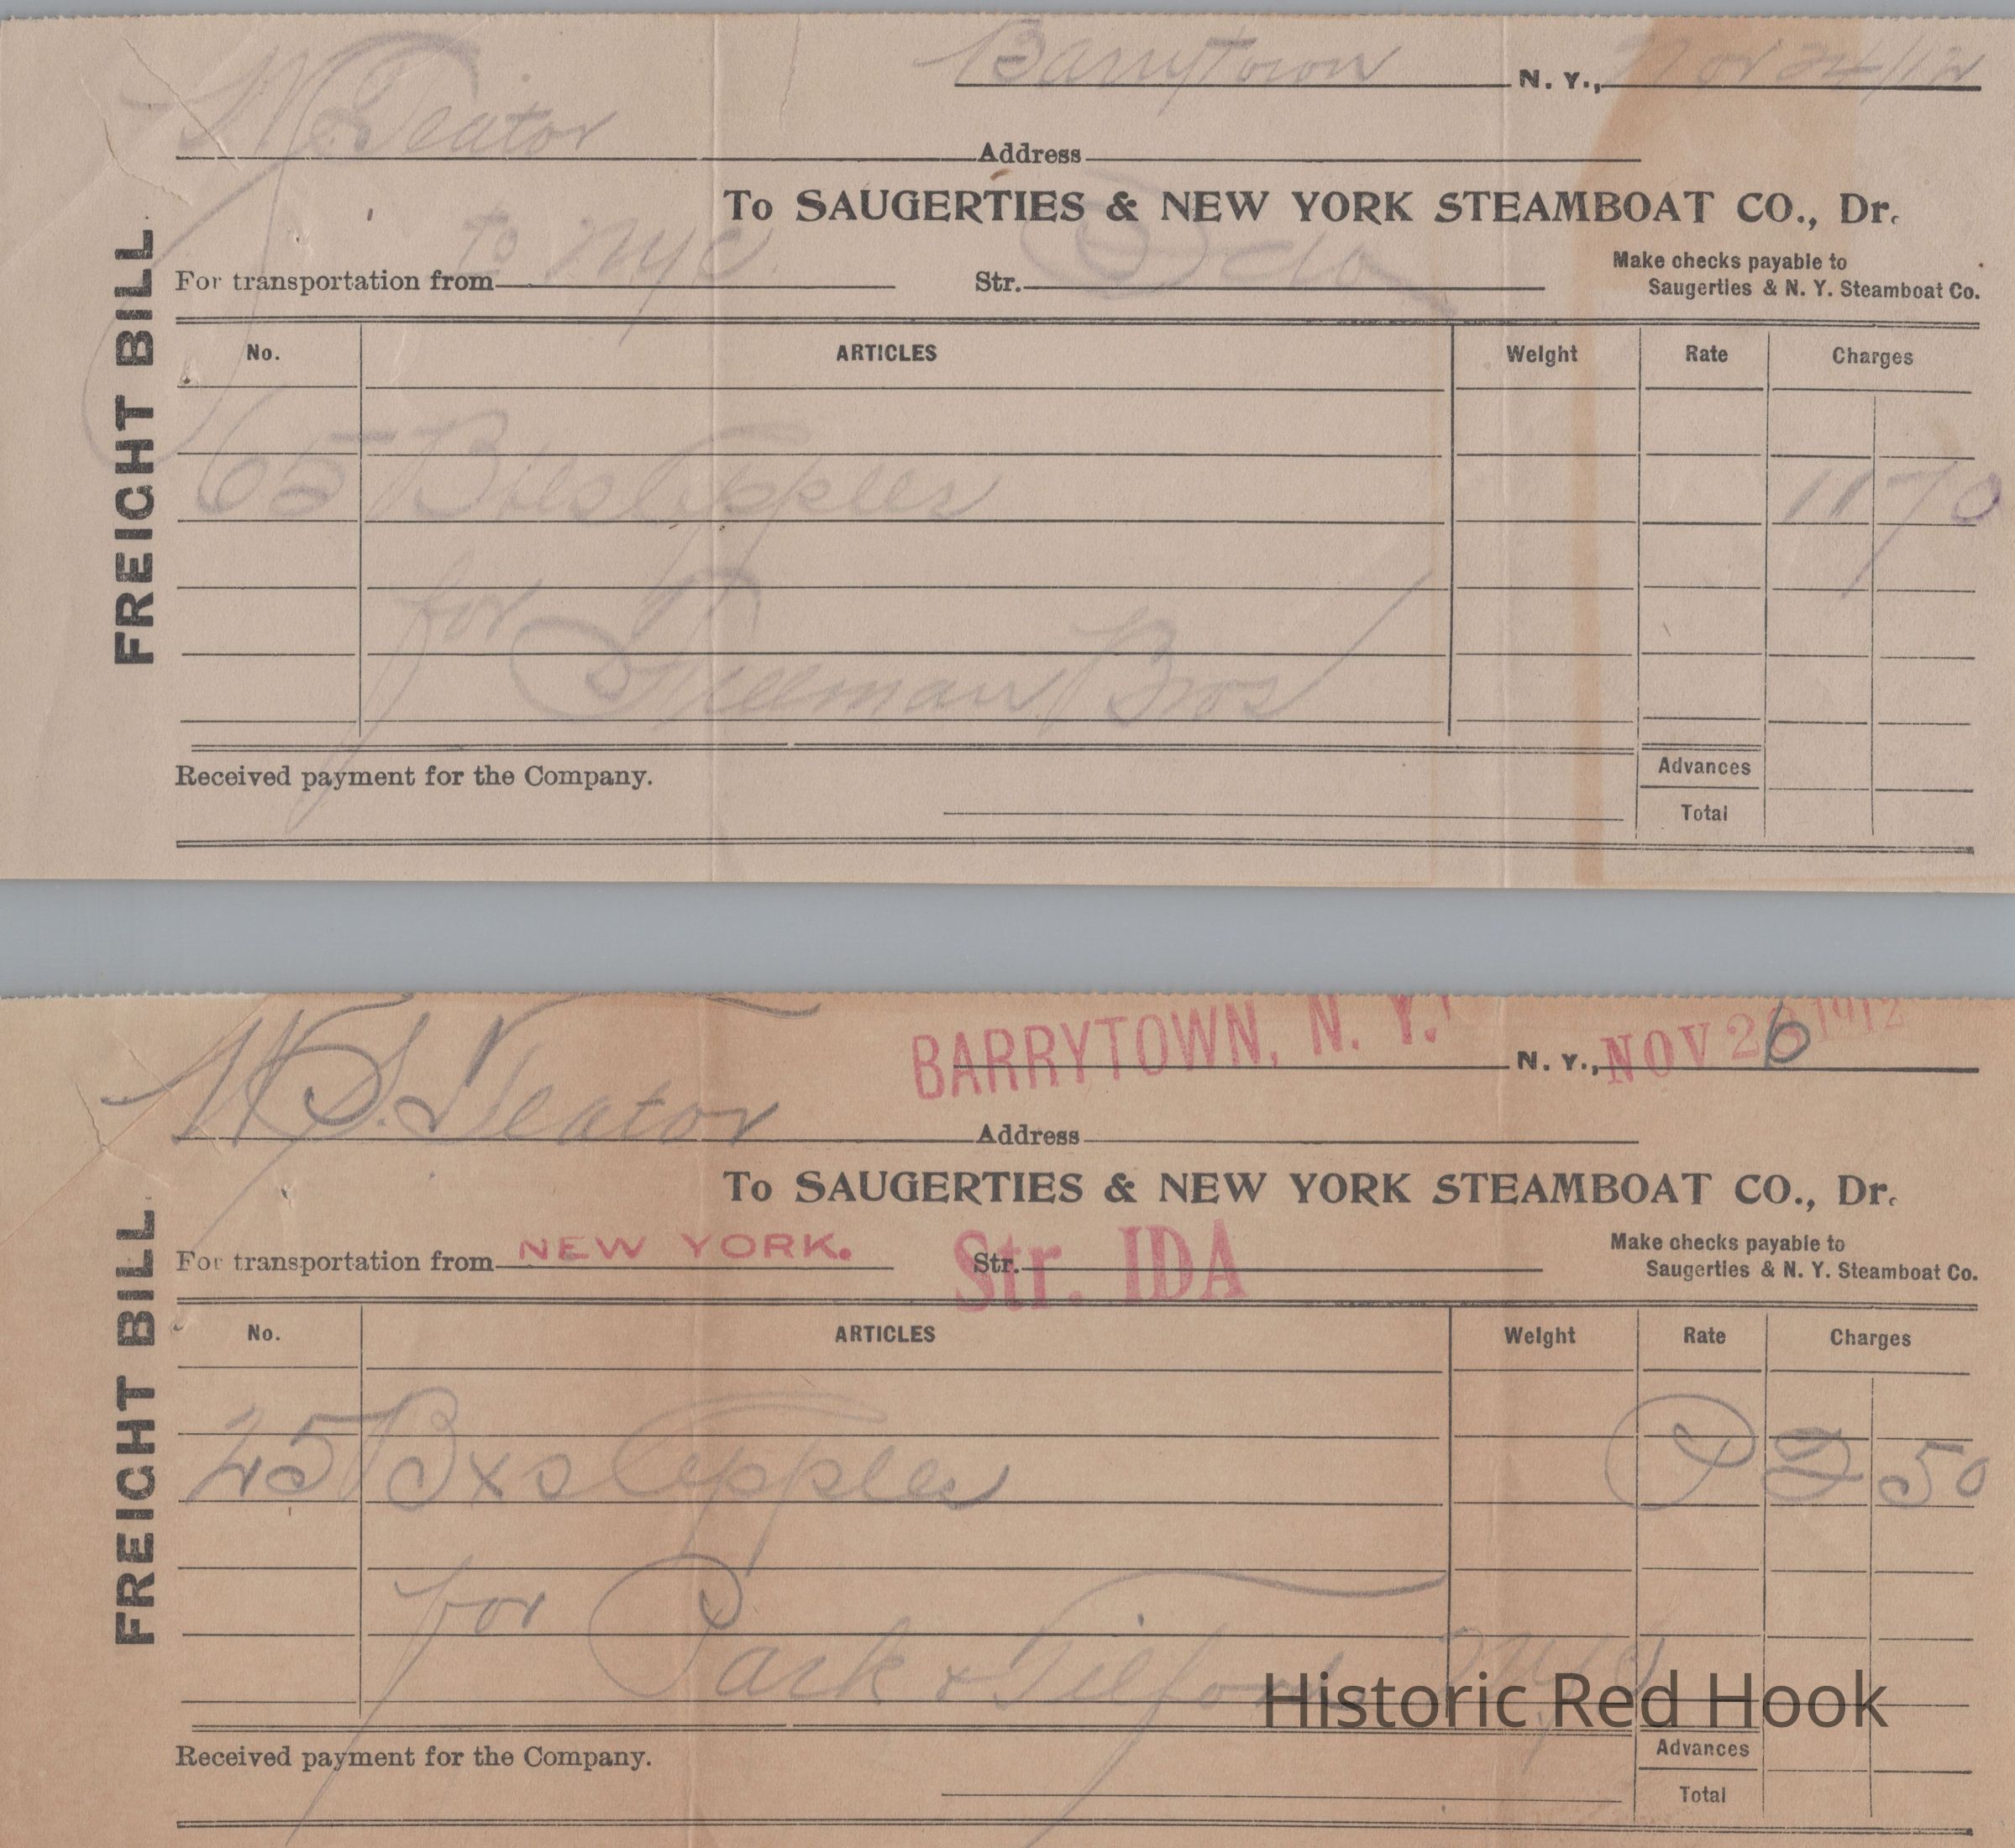 Barrytown N. Y., Nov 24/12
W Teator Address
To SAUGERTIES & NEW YORK STEAMBOAT CO., Dr.
For transportation from to NYC Str. Ida
Make checks payable to
Saugerties & N. Y. Steamboat Co.
FREIGHT BILL.
No. ARTICLES Weight Rate Charges
65 Bbls Apples 11 70
for
Bros
Received payment for the Company.
Advances
Total
BARRYTOWN, N. Y. N. Y., NOV 26 1912
W.S. Teator Address
To SAUGERTIES & NEW YORK STEAMBOAT CO., Dr.
For transportation from NEW YORK. Str. Str. IDA
Make checks payable to
Saugerties & N. Y. Steamboat Co.
FREIGHT BILL.
No. ARTICLES Weight Rate Charges
25 Bxs Apples 2 50
for Park & Tilford NYC
Historic Red Hook
Received payment for the Company.
Advances
Total